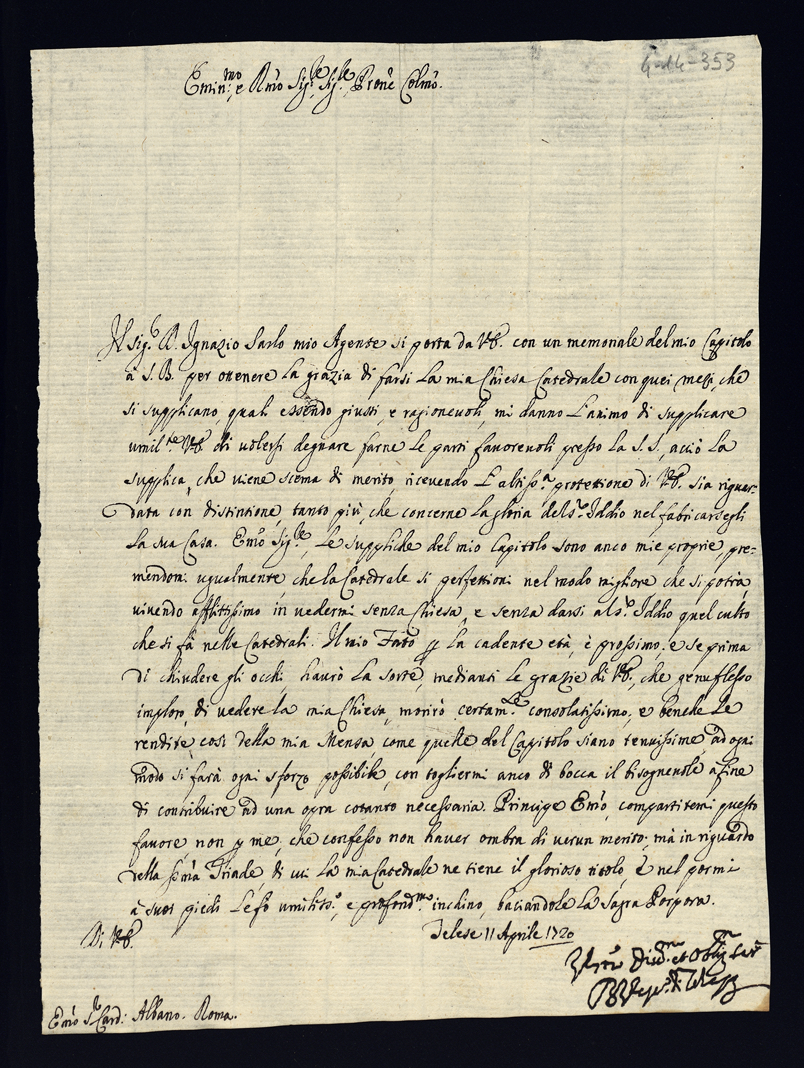 6-14-353
Emin:mo, e Rmo Sig:re Sig:re Prone Colmo.
Il Sig:r D. Ignazio Sarlo mio Agente si porta da V.E. con un memoriale del mio Capitolo
a S. B. per ottenere la grazia di farsi la mia Chiesa Catedrale con quei mezi, che
si supplicano, quali essendo giusti, e ragionevoli, mi danno l'animo di supplicare
umil:te V.E. di volersi degnare farne le parti favorevoli presso la S. S., acciò la
supplica, che viene scema di merito, ricevendo l'altiss:a protettione di V.E. sia riguar-
data con distintione, tanto più, che concerne la gloria del S:r Iddio nel fabricarsegli
la sua Casa. Emo Sig:re, le suppliche del mio Capitolo sono anco mie proprie, pre-
mendomi ugualmente che la Catedrale si perfettioni nel modo migliore che si potrà,
vivendo afflittissimo in vedermi senza Chiesa, e senza darsi al S:r Iddio quel culto
che si fà nelle Catedrali. Il mio Fato p la cadente età, è prossimo; e se prima
di chiudere gli occhi, haurò la sorte, medianti le grazie di V.E., che genuflesso
imploro, di vedere la mia Chiesa, morirò certam:te consolatissimo, e benche le
rendite così della mia Mensa, come quelle del Capitolo siano tenuissime, ad ogni
modo si farà ogni sforzo possibile, con togliermi anco di bocca il bisognevole a fine
di contribuire ad una opra cotanto necessaria. Principe Emo, compartitemi questo
favore non p me, che confesso non haver ombra di verun merito; mà in riguardo
della ssma Triade, di cui la mia Catedrale ne tiene il glorioso titolo, e nel pormi
a suoi piedi le fò umiliss:o, e profond:mo inchino, baciandole la Sagra Porpora.
Di V.E.
Telese 11 Aprile 1720
et Oblig
Emo S:r Card: Albano. Roma.